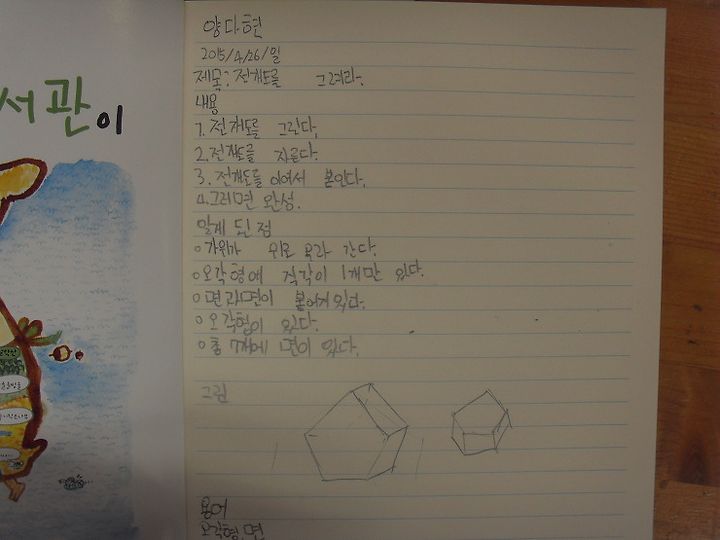 서관이
양다현
2015/4/26/일
제목: 전개도를 그려라.
내용
1. 전개도를 그린다.
2. 전개도를 자른다.
3. 전개도를 이어서 붙인다.
4. 그러면 완성.
알게 된 점
○가위가 위로 올라 간다.
○오각형에 직각이 1개만 있다.
○면과면이 붙어게있다.
○오각형이 있다.
○총 7개에 면이 있다.
그림
용어
오각형, 면